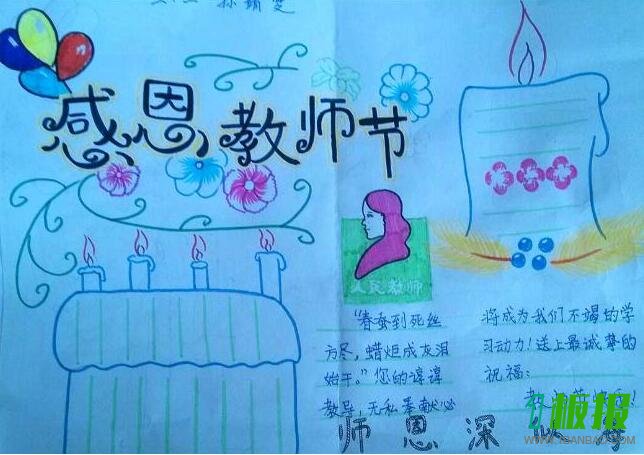 感恩教师节
人民教师
“春蚕到死丝
方尽，蜡炬成灰泪
始干。”您的谆谆
教导，无私奉献必
将成为我们不竭的学
习动力！送上最诚挚的
祝福：
师恩深
板报